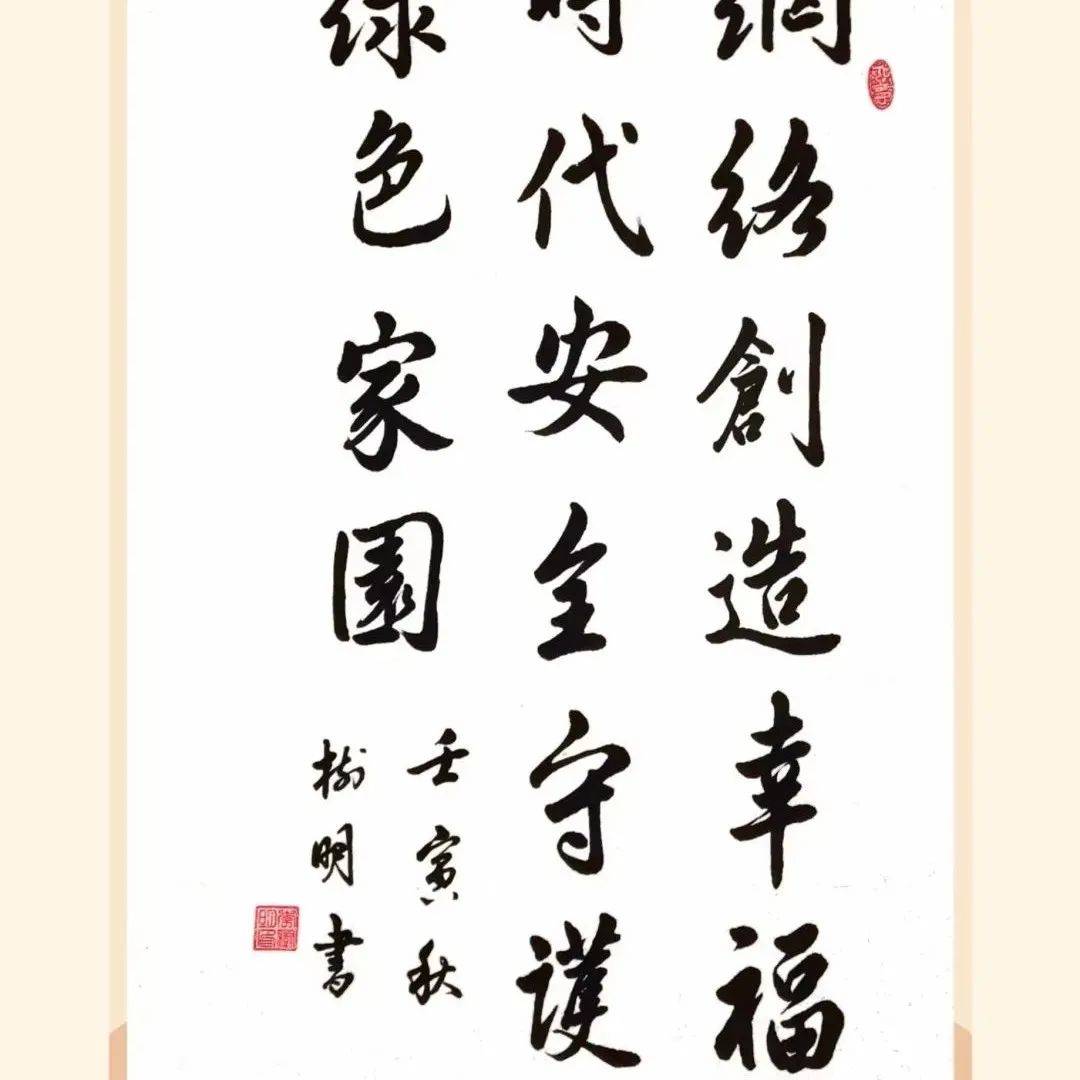 網絡創造幸福
時代安全守護
綠色家園
壬寅秋
樹明書